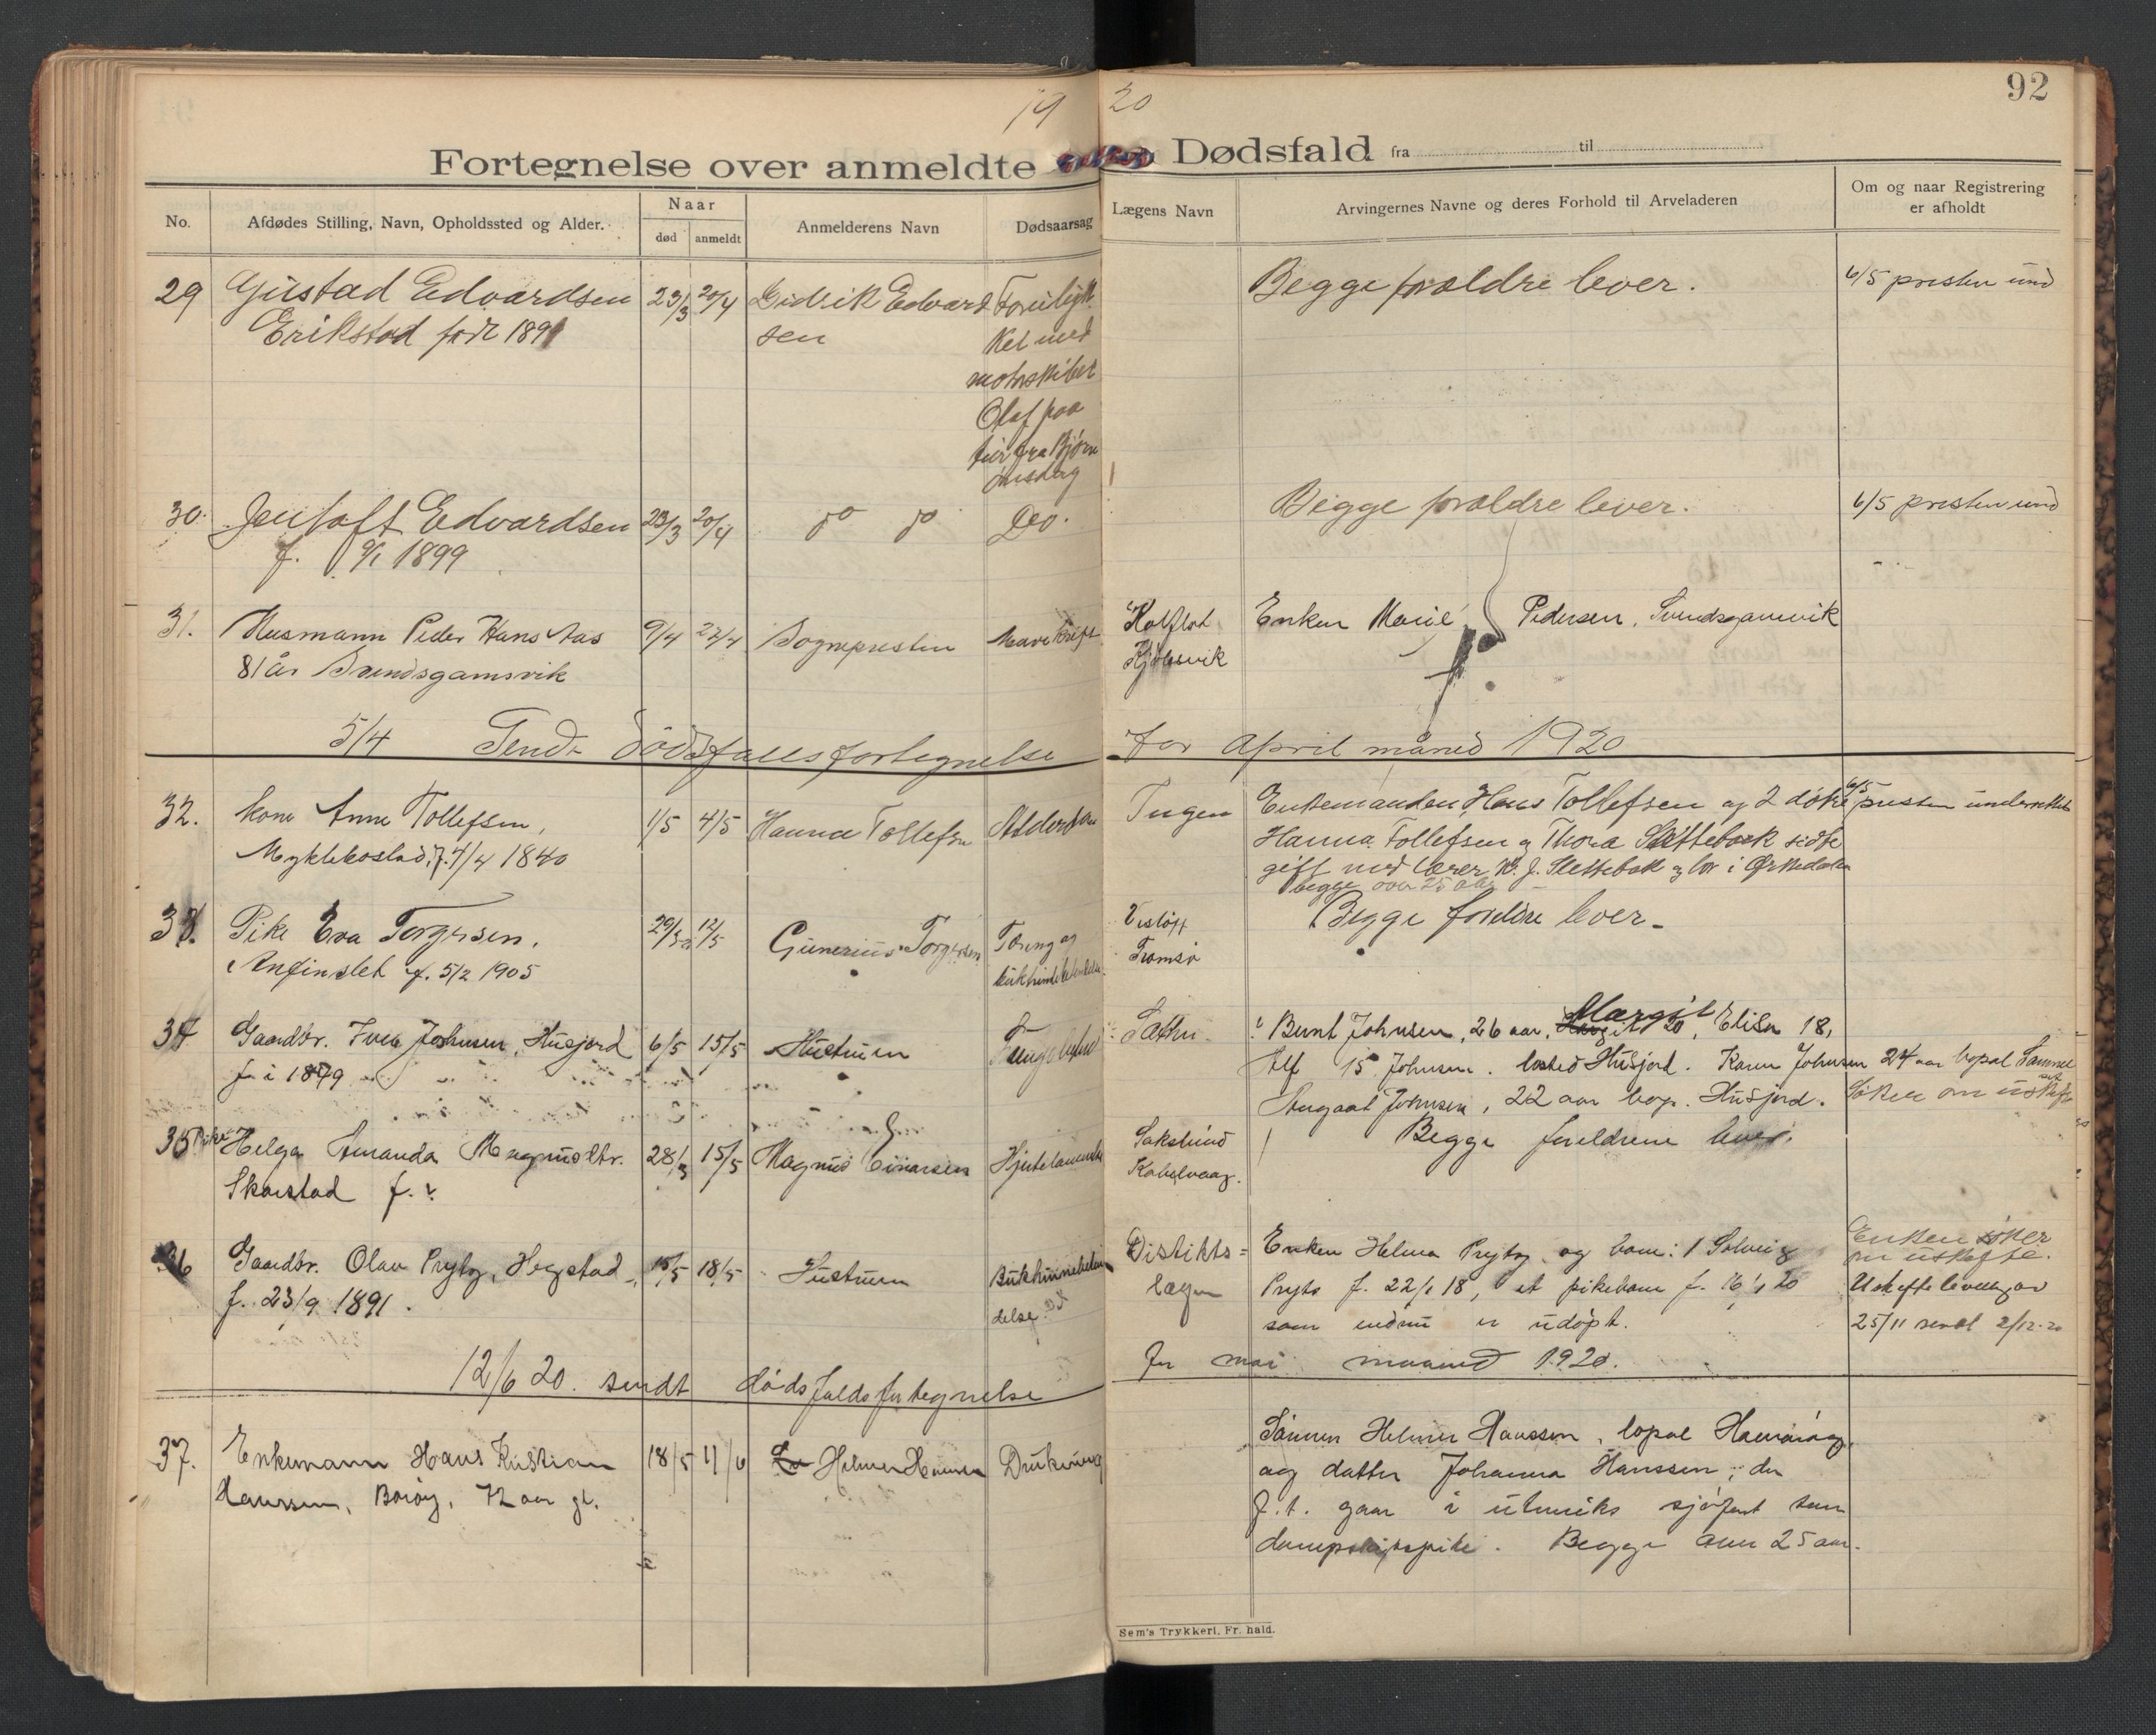 19 20
92
Fortegnelse over anmeldte Dødsfald fra til
No.
Afdødes Stilling, Navn, Opholdssted og Alder.
Naar
død
anmeldt
Anmelderens Navn
Dødsaarsag
Lægens Navn
Arvingernes Navne og deres Forhold til Arveladeren
Om og naar Registrering
er afholdt
29 Gustad Edvardsen 23/3 20/4 Didrik Edvard Forulyk Begge forældre lever. 6/5 presten und
Erikstad født 1891 sen ket med
motorskibet
Olaf paa
tur fra Bjørn
30. Jentoft Edvardsen 23/3 20/4 do do Do. Begge forældre lever. 6/5 presten und
f. 9/1 1899
31. Husmann Peder Hans Aas 9/4 27/4 Sognepresten Mavekræft Enken Marie Pedersen, Svendsgamvik
81 år Svendsgamsvik
5/4 Sendt dødsfallsfortegnelse for April måned 1920
32. Kone Anne Tollefsen, 1/5 4/5 Hanna Tollefsen Alderdom Ingen Enkemanden Hans Tollefsen og 2 døtre 6/5 presten underrettet
Myklebostad, f. 4/4 1840 Hanna Tollefsen og Thora Slettebak sidste
gift med lærer J. Slettebak og bor i Ørkedalen
begge over 25 aar
33. Pike Eva Torgersen, 29/3 12/5 Gunerius Torgersen Tæring og Begge foreldre lever.
Anfinslet f. 5/2 1905 Tromsø
34 Gaardbr. Johnsen, Husjord 6/5 15/5 Hustruen Bernt Johnsen, 26 aar, Margit 20, Elisa 18,
f. i 1879 Alf 15 Johnsen. bosted Husjord. Karen Johnsen 24 aar bopæl
August Johnsen, 22 aar bop. Husjord. Søker om uskifte
35 Pike Helga Amanda Magnusdtr. 28/3 15/5 Magnus Einarsen Hjertelammelse Begge foreldrene lever.
Skarstad f. Kabelvaag.
36 Gaardbr. Olav Prytz, Hegstad 15/5 18/5 Hustruen Bukhinnebetæn Distikts= Enken Helma Prytz og barn: 1 Solveig Enken søker
f. 23/9 1891. delse. lægen Prytz f. 22/1 18, et pikebarn f. 16/1 20 om uskifte.
som endnu er udøpt. Uskiftebevilling av
25/11 sendt 2/12-20
12/6 20. sendt dødsfaldsfortegnelse for mai maaned 1920.
37. Enkemann Hans Kristian 18/5 11/6 Helmer Hanssen Drukning Sønnen Helmer Hanssen, bopæl
Hanssen, Barøy, 72 aar gl. og datter Johanna Hanssen, der
f.t. gaar i utenriks sjøfart som
dampskipspike. Begge over 25 aar.
Sem's Trykkeri, Fr. hald.